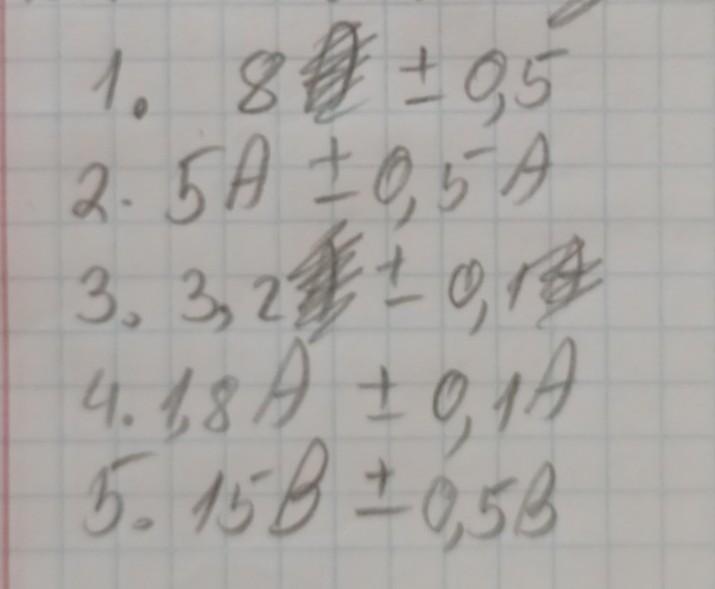 1. 8 ± 0,5
2. 5A ± 0,5A
3. 3,2 ± 0,1
4. 1,8A ± 0,1A
5. 15В ± 0,5В